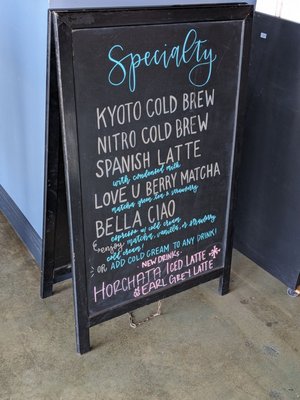 Specialty
KYOTO COLD BREW
NITRO COLD BREW
SPANISH LATTE
with condensed milk
LOVE U BERRY MATCHA
matcha green tea & strawberry
BELLA CIAO
espresso w/ cold cream
enjoy matcha, vanilla, or strawberry
cold cream!
OR ADD COLD CREAM TO ANY DRINK!
NEW DRINKS:
HORCHATA ICED LATTE
EARL GREY LATTE